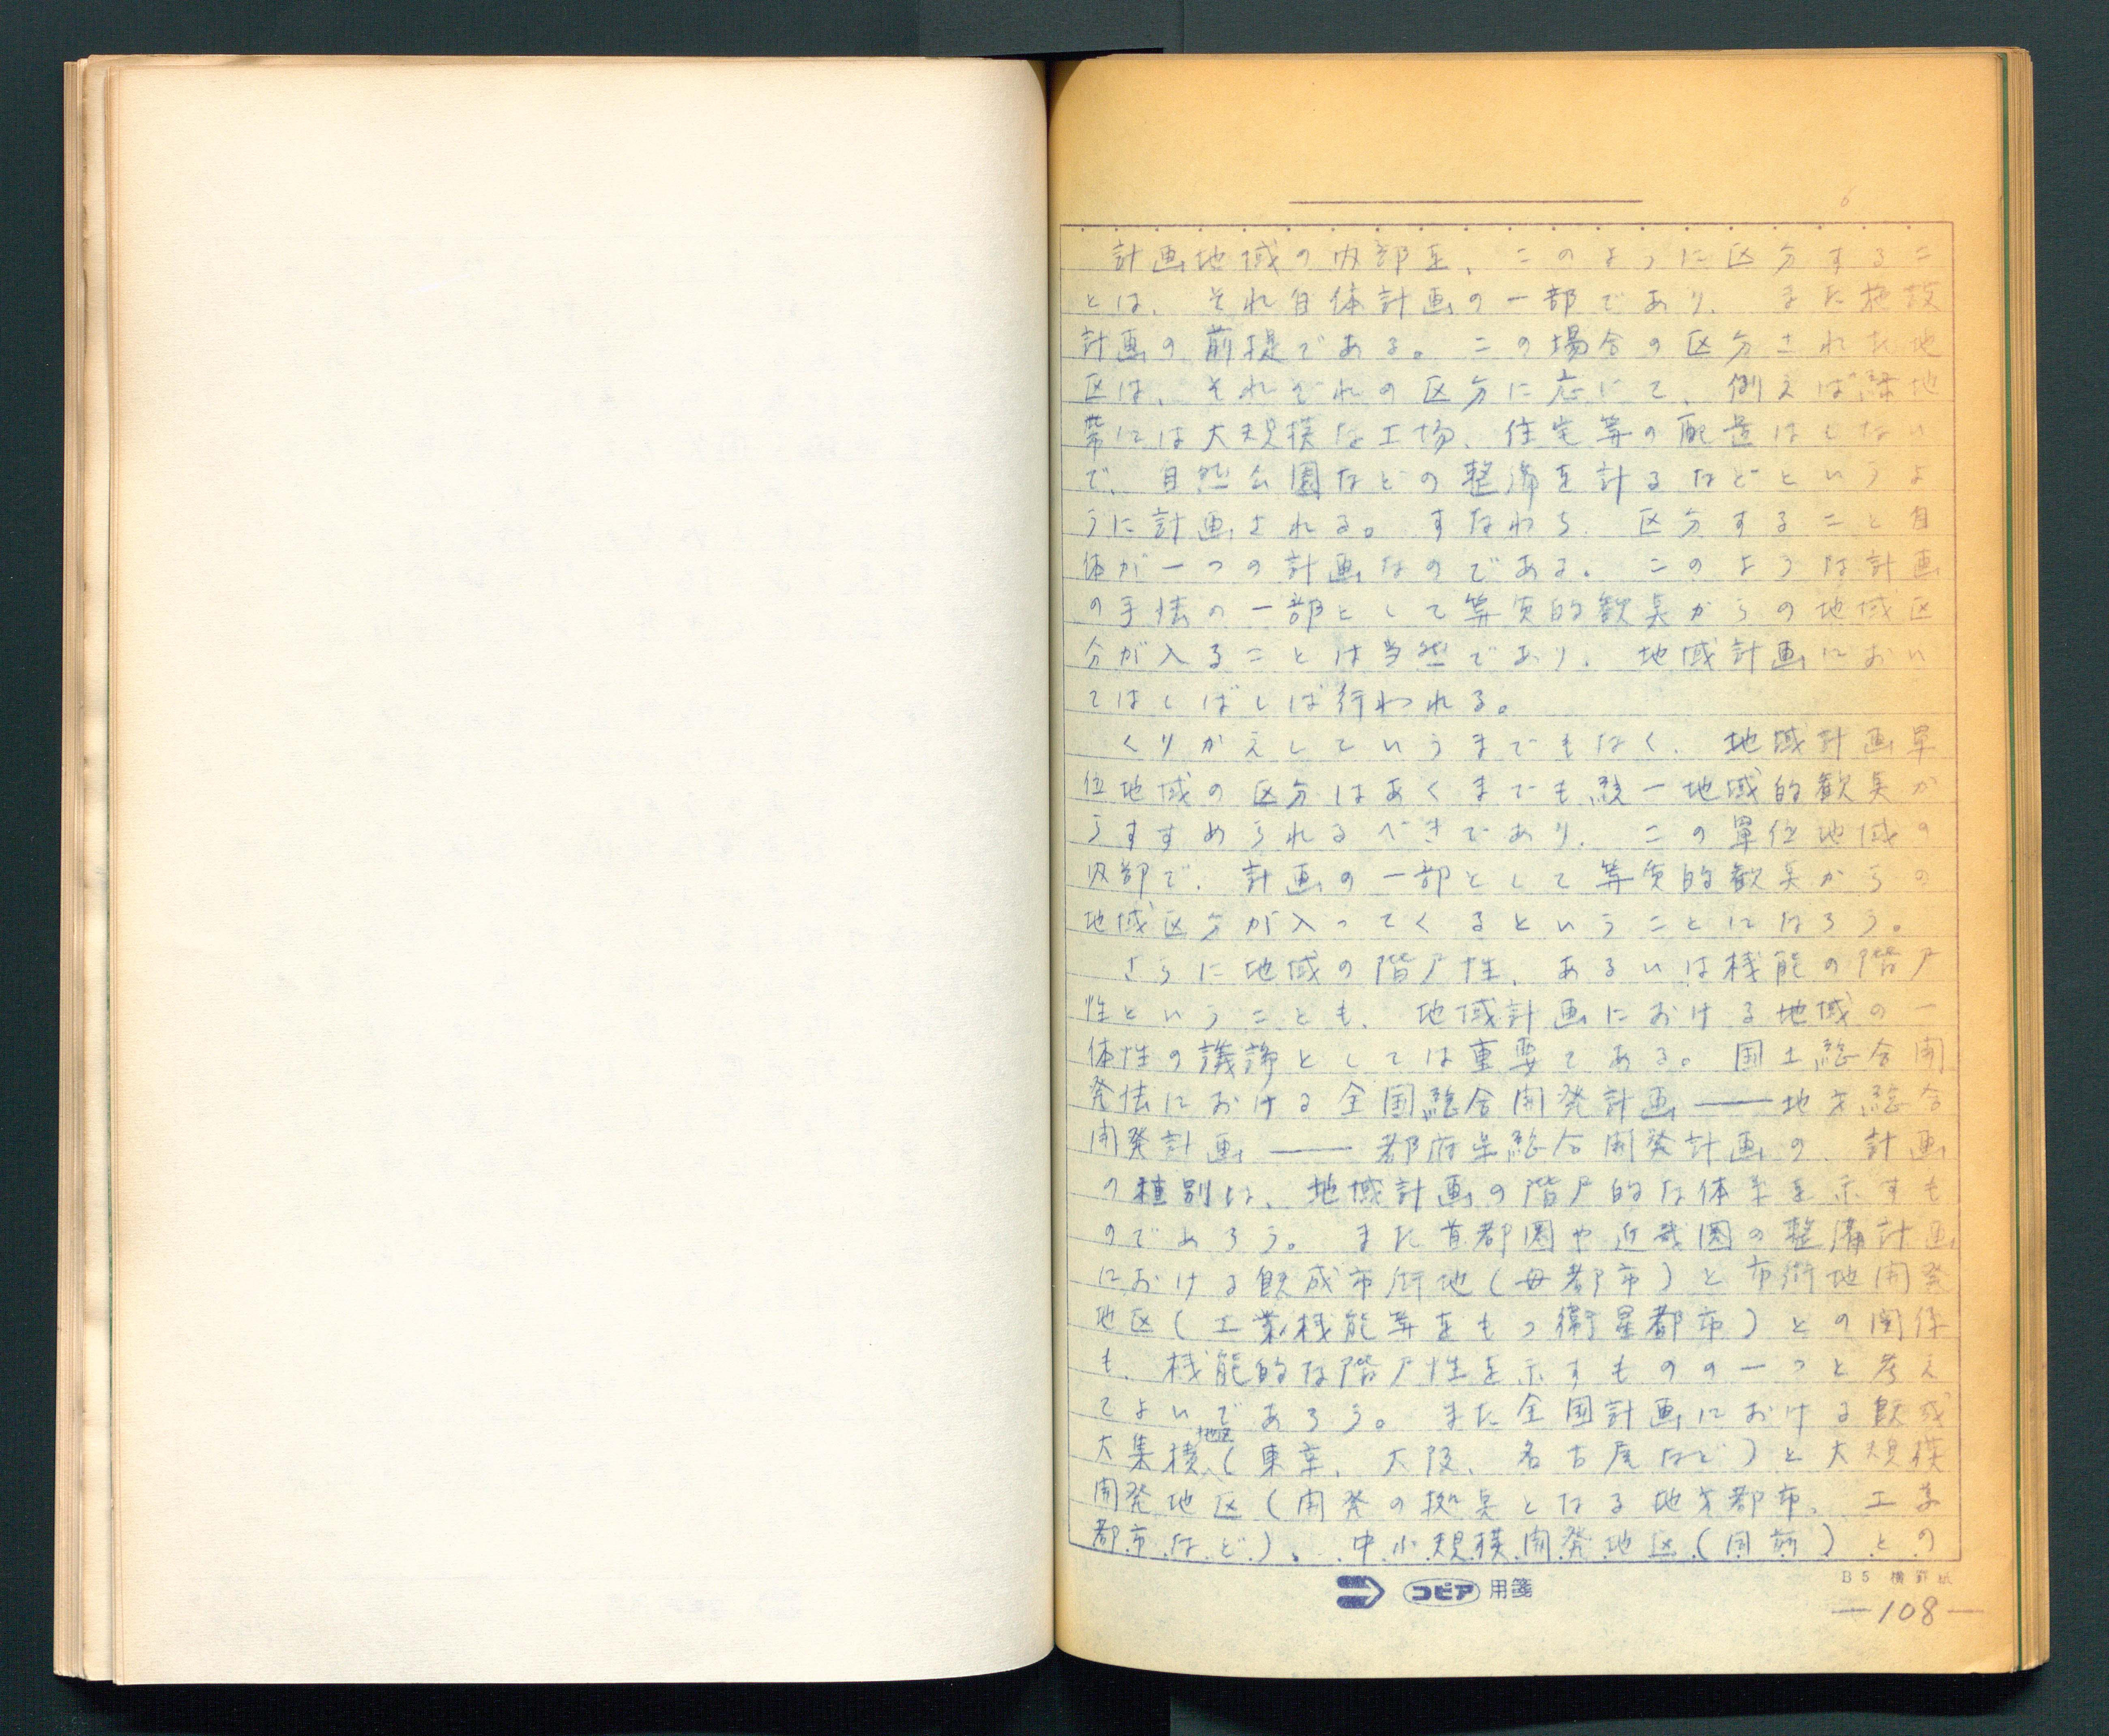 6
計画地域の内部を、このように区分するこ
とは、それ自体計画の一部であり、また施設
計画の前提である。この場合の区分された地
区は、それぞれの区分に応じて、例えば緑地
帯には大規模な工場、住宅等の配置はしない
で、自然公園などの整備を計るなどというよ
うに計画される。すなわち、区分すること自
体が一つの計画なのである。このような計画
の手法の一部として等質的観点からの地域区
分が入ることは当然であり、地域計画におい
てはしばしば行われる。
くりかえしていうまでもなく、地域計画単
位地域の区分はあくまでも統一地域的観点か
らすすめられるべきであり、この単位地域の
内部で、計画の一部として等質的観点からの
地域区分が入ってくるということになろう。
さらに地域の階戸性、あるいは機能の階戸
性ということも、地域計画における地域の一
体性の議論としては重要である。国土総合開
発法における全国総合開発計画――地方総合
開発計画――都府県総合開発計画の、計画
の種別は、地域計画の階戸的な体系を示すも
のであろう。また首都圏や近畿圏の整備計画
における既成市街地（母都市）と市街地開発
地区（工業機能等をもつ衛星都市）との関係
も、機能的な階戸性を示すものの一つと考え
てよいであろう。また全国計画における既成
大集積地区（東京、大阪、名古屋など）と大規模
開発地区（開発の拠点となる地方都市、工業
都市など）、中小規模開発地区（同前）との
コピア 用箋
B5 横罫紙
—108—